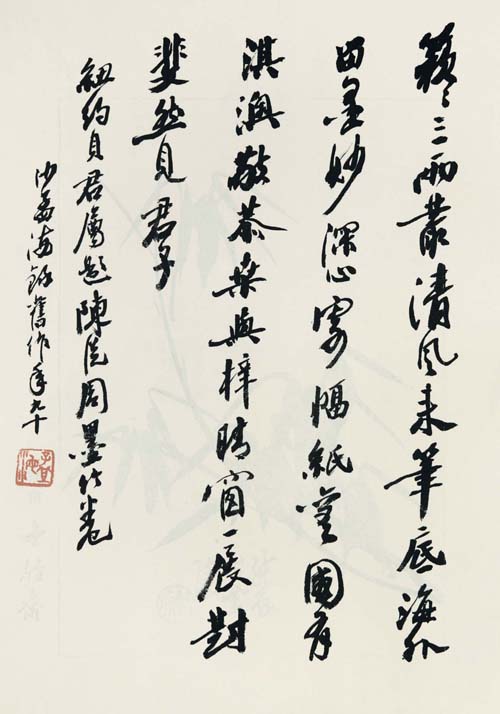 簌〻三兩叢清風來筆底海外
留墨妙深心寄幅紙國有
淇澳敬恭桑與梓晴窗一展對
斐然見君子
紐約貝君屬題陳從周墨竹卷
沙孟海錄舊作年九十